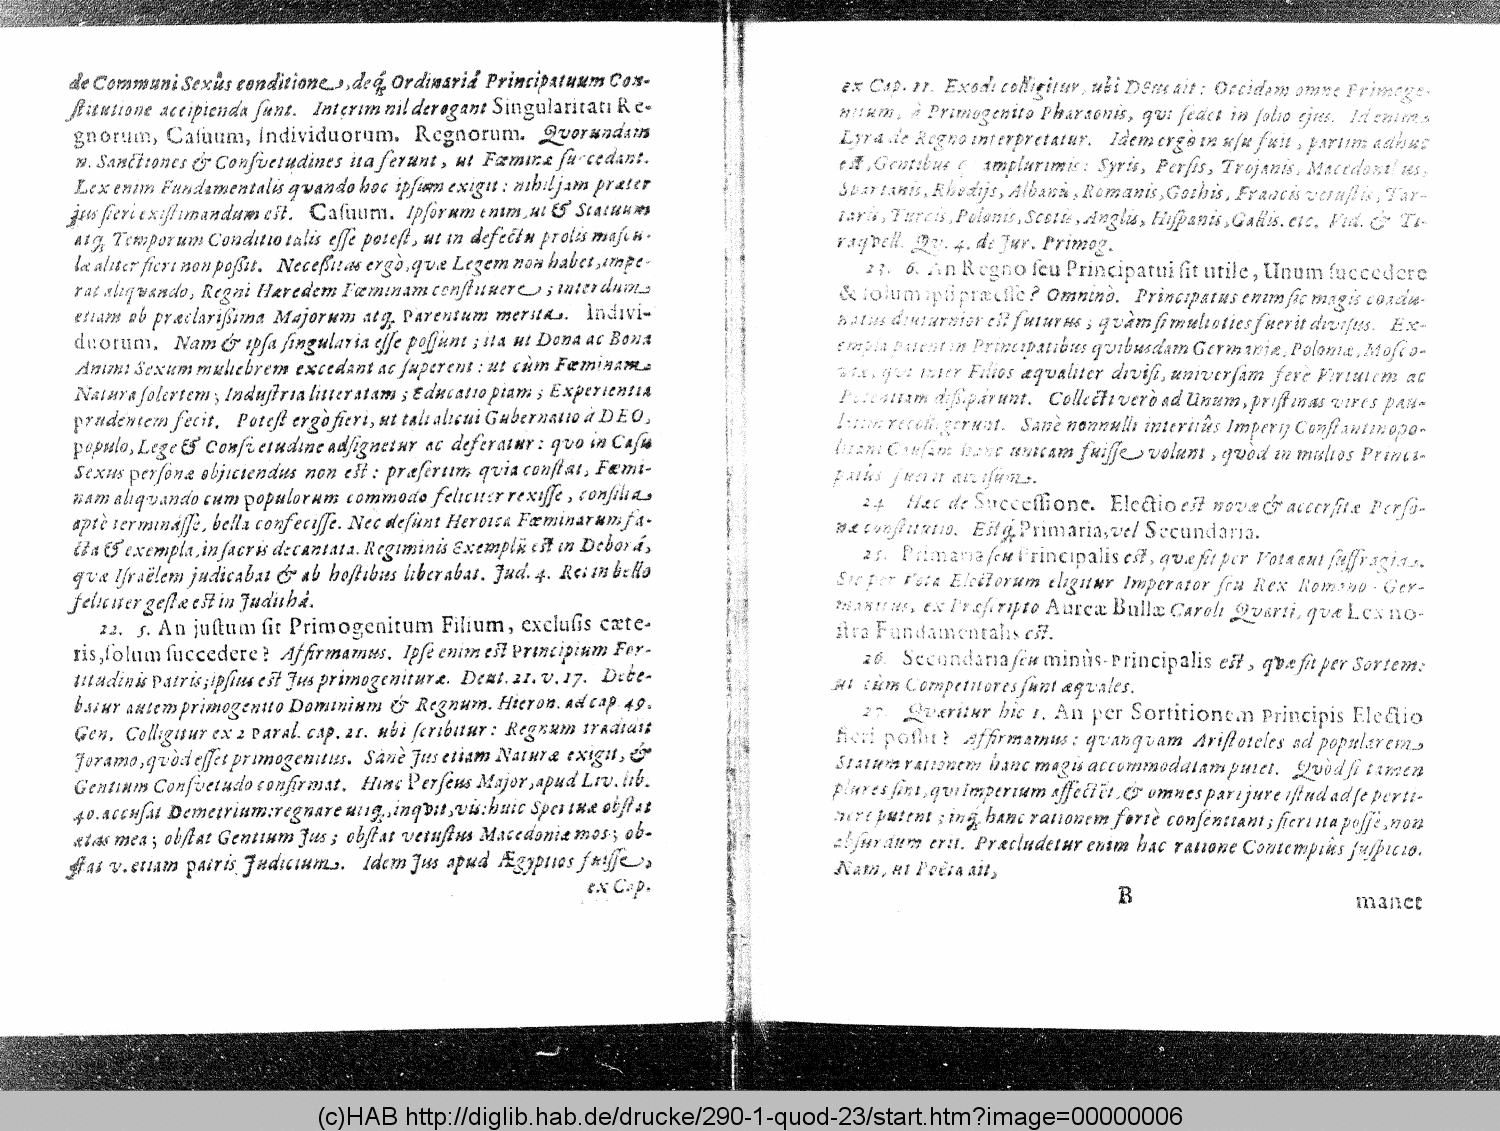 de Communi Sexûs conditione, deq́; Ordinariâ Principatuum Con-
ſtitutione accipienda ſunt. Interim nil derogant Singularitati Re-
gnorum, Caſuum, Individuorum. Regnorum. Quorundam
n. Sanctiones & Conſvetudines ita ferunt, ut Fœminæ ſuccedant.
Lex enim Fundamentalis quando hoc ipſum exigit: nihil jam præter
jus fieri exiſtimandum eſt. Caſuum. Ipſorum enim, ut & Statuum
atq́; Temporum Conditio talis eſſe poteſt, ut in defectu prolis maſcu-
læ aliter fieri non poſſit. Neceſſitas ergò, quæ Legem non habet, impe-
rat aliquando, Regni Hæredem Fœminam conſtituere; interdum
etiam ob præclariſſima Majorum atq́; Parentum merita. Indivi-
duorum. Nam & ipſa ſingularia eſſe poſſunt; ita ut Dona ac Bona
Animi Sexum muliebrem excedant ac ſuperent: ut cùm Fœminam
Natura ſolertem; Induſtria litteratam; Educatio piam; Experientia
prudentem fecit. Poteſt ergò fieri, ut tali alicui Gubernatio à DEO,
populo, Lege & Conſvetudine adſignetur ac deferatur: quo in Caſu
Sexus perſonæ objiciendus non eſt: præſertim quia conſtat, Fœmi-
nam aliquando cum populorum commodo feliciter rexiſſe, conſilia
aptè terminâſſe, bella confeciſſe. Nec deſunt Heroica Fœminarum fa-
cta & exempla, in ſacris decantata. Regiminis Exemplũ eſt in Deborâ,
quæ Iſraëlem judicabat & ab hoſtibus liberabat. Jud. 4. Rei in bello
feliciter geſtæ eſt in Judithâ.
22. 5. An juſtum ſit Primogenitum Filium, excluſis cæte-
ris, ſolum ſuccedere? Affirmamus. Ipſe enim eſt Principium For-
titudinis Patris; ipſius eſt Jus primogenituræ. Deut. 21. v. 17. Debe-
batur autem primogenito Dominium & Regnum. Hieron. ad cap. 49.
Gen. Colligitur ex 2 Paral. cap. 21. ubi ſcribitur: Regnum tradidit
Joramo, quòd eſſet primogenitus. Sanè Jus etiam Naturæ exigit, &
Gentium Conſvetudo confirmat. Hinc Perſeus Major, apud Liv. lib.
40. accuſat Demetrium: regnare utiq́;, inquit, vis: huic Spei tuæ obſtat
ætas mea; obſtat Gentium Jus; obſtat vetuſtus Macedoniæ mos; ob-
ſtat v. etiam patris Judicium. Idem Jus apud Ægyptios fuiſſe,
ex Cap.
ex Cap. 11. Exodi colligitur, ubi DEus ait: Occidam omne Primoge-
nitum, à Primogenito Pharaonis, qui ſedet in ſolio ejus. Id enim
Lyra de Regno interpretatur. Idem ergò in uſu fuit, partim adhuc
eſt, Gentibus amplurimis: Syris, Perſis, Trojanis, Macedonibus,
Spartanis, Rhodijs, Albanis, Romanis, Gothis, Francis vetuſtis, Tar-
taris, Turcis, Polonis, Scotis, Anglis, Hiſpanis, Gallis. etc. Vid. & Ti-
raquell. Qu. 4. de Jur. Primog.
23. 6. An Regno ſeu Principatui ſit utile, Unum ſuccedere
& ſolum ipſi præeſſe? Omninò. Principatus enim ſic magis coadu-
natus diuturnior eſt futurus; quàm ſi multoties fuerit diviſus. Ex-
empla patent in Principatibus quibusdam Germaniæ, Poloniæ, Moſco-
viæ, qui inter Filios æqualiter diviſi, univerſam ferè Virtutem ac
Potentiam diſſiparunt. Collecti verò ad Unum, priſtinas vires pau-
latim recolligerunt. Sanè nonnulli interitûs Imperij Conſtantinopo-
litani Cauſam hanc unicam fuiſſe volunt, quòd in multos Princi-
patûs fuerit diviſum.
24 Hæc de Succeſſione. Electio eſt novæ & accerſitæ Perſo-
næ conſtitutio. Eſtq́; Primaria, vel Secundaria.
25. Primaria ſeu Principalis eſt, quæ fit per Vota aut ſuffragia.
Sic per Vota Electorum eligitur Imperator ſeu Rex Romano-Ger-
manicus, ex Præſcripto Aureæ Bullæ Caroli Quarti, quæ Lex no-
ſtra Fundamentalis eſt.
26. Secundaria ſeu minùs-Principalis eſt, quæ fit per Sortem:
ut cùm Competitores ſunt æquales.
27. Quæritur hîc 1. An per Sortitionem Principis Electio
fieri poſſit? Affirmamus: quanquam Ariſtoteles ad popularem
Statum rationem hanc magis accommodatam putet. Quòd ſi tamen
plures ſint, qui imperium affectẽt, & omnes pari jure iſtud ad ſe perti-
nere putent; inq́; hanc rationem fortè conſentiant; fieri ita poſſe, non
abſurdum erit. Præcludetur enim hac ratione Contemptûs ſuſpicio.
Nam, ut Poëta ait,
B manet
(c)HAB http://diglib.hab.de/drucke/290-1-quod-23/start.htm?image=00000006